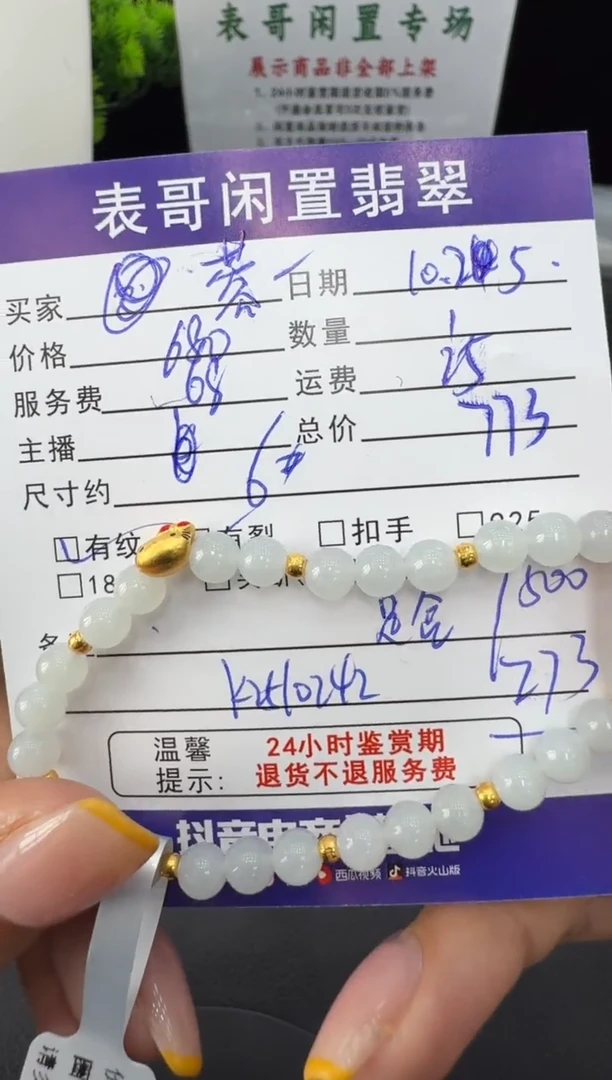 表哥闲置专场
展示商品非全部上架
表哥闲置翡翠
买家 蓉 日期 10.25.
价格 680 数量 1
服务费 68 运费 25
主播 总价 773
尺寸约 6#
有纹 有裂 扣手 925
18
足金 1500
K2510242 273
温馨 24小时鉴赏期
提示: 退货不退服务费
抖音电商
西瓜视频 抖音火山版